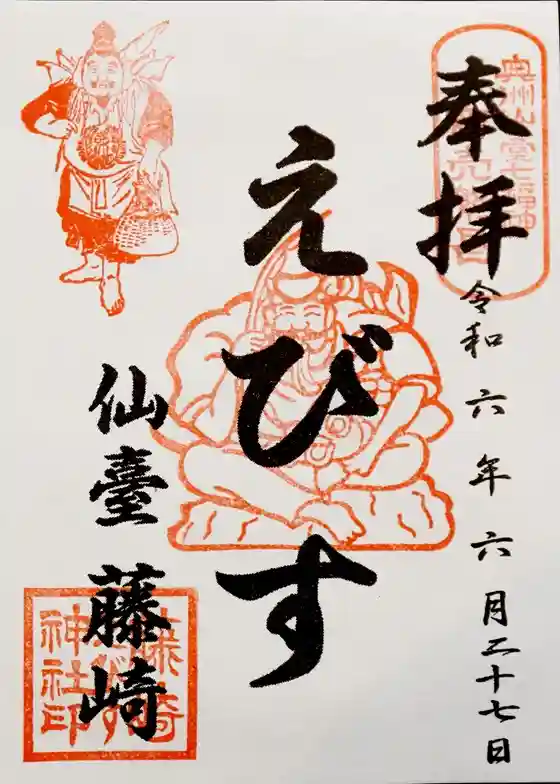 奉拝
奥州仙臺七福神
令和六年六月二十七日
えびす
仙臺 藤崎
藤崎
えびす
神社印